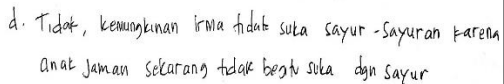 d. Tidak, kemungkinan irma tidak suka sayur-sayuran karena
anak jaman sekarang tidak begtu suka dgn sayur